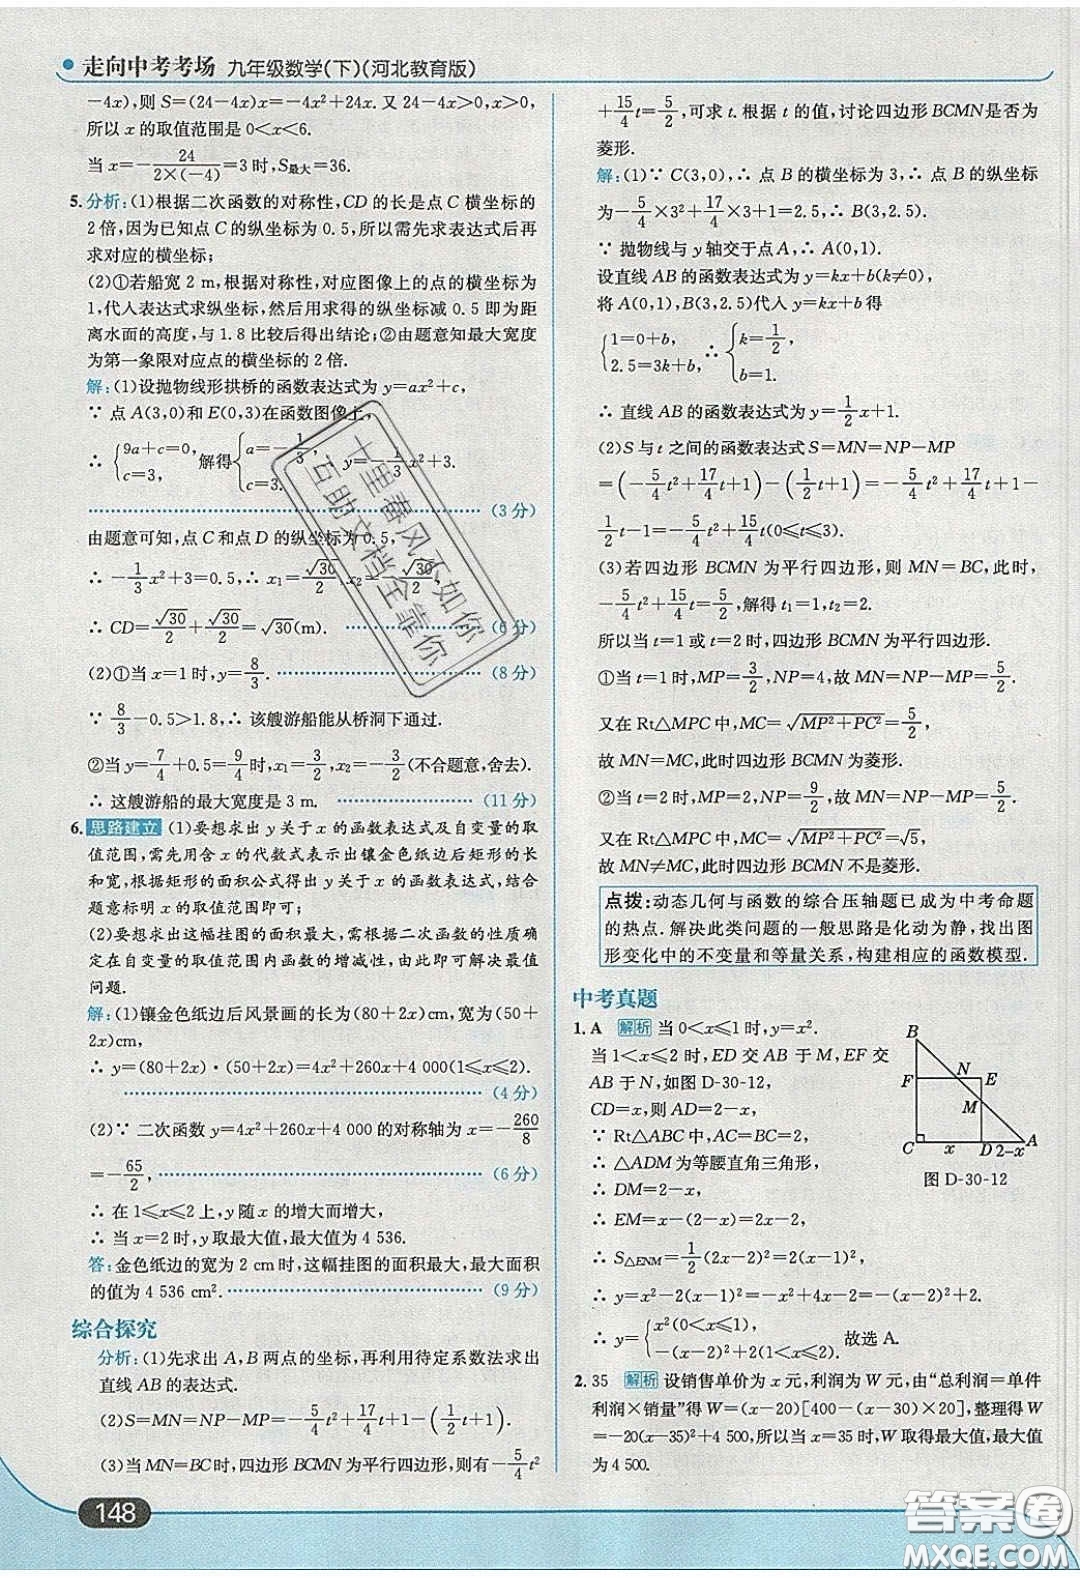 走向中考考场 九年级数学(下)(河北教育版)
-4x),则 S=(24-4x)x=-4x²+24x. 又 24-4x>0,x>0,
所以 x 的取值范围是 0<x<6.
当 x=-24/(2×(-4))=3 时,S最大=36.
5. 分析:(1)根据二次函数的对称性,CD 的长是点 C 横坐标的
2 倍,因为已知点 C 的纵坐标为 0.5,所以需先求表达式后再
求对应的横坐标;
(2)①若船宽 2 m,根据对称性,对应图像上的点的横坐标为
1,代入表达式求纵坐标,然后用求得的纵坐标减 0.5 即为距
离水面的高度,与 1.8 比较后得出结论;②由题意知最大宽度
为第一象限对应点的横坐标的 2 倍.
解:(1)设抛物线形拱桥的函数表达式为 y=ax²+c,
∵ 点 A(3,0)和 E(0,3)在函数图像上,
∴ {9a+c=0, c=3, 解得{a=-1/3, c=3. y=-1/3x²+3.
(3 分)
由题意可知,点 C 和点 D 的纵坐标为 0.5,
∴ -1/3x²+3=0.5,∴ x₁=√30/2,x₂=-√30/2,
∴ CD=√30/2+√30/2=√30(m). (6 分)
(2)①当 x=1 时,y=8/3. (8 分)
∵ 8/3-0.5>1.8,∴ 该艘游船能从桥洞下通过.
②当 y=7/4+0.5=9/4时,x₁=3/2,x₂=-3/2(不合题意,舍去).
∴ 这艘游船的最大宽度是 3 m. (11 分)
6. 思路建立 (1)要想求出 y 关于 x 的函数表达式及自变量的取
值范围,需先用含 x 的代数式表示出镶金色纸边后矩形的长
和宽,根据矩形的面积公式得出 y 关于 x 的函数表达式,结合
题意标明 x 的取值范围即可;
(2)要想求出这幅挂图的面积最大,需根据二次函数的性质确
定在自变量的取值范围内函数的增减性,由此即可解决最值
问题.
解:(1)镶金色纸边后风景画的长为(80+2x)cm,宽为(50+
2x)cm,
∴ y=(80+2x)·(50+2x)=4x²+260x+4 000(1≤x≤2).
(4 分)
(2)∵ 二次函数 y=4x²+260x+4 000 的对称轴为 x=-260/8
=-65/2, (6 分)
∴ 在 1≤x≤2 上,y 随 x 的增大而增大,
∴ 当 x=2 时,y取最大值,最大值为 4 536.
答:金色纸边的宽为 2 cm 时,这幅挂图的面积最大,最大面积
的值为 4 536 cm². (9 分)
综合探究
分析:(1)先求出 A,B 两点的坐标,再利用待定系数法求出
直线 AB 的表达式.
(2)S=MN=NP-MP=-5/4t²+17/4t+1-(1/2t+1).
(3)当 MN=BC 时,四边形 BCMN 为平行四边形,则有-5/4t²
148
+15/4t=5/2,可求 t. 根据 t 的值,讨论四边形 BCMN 是否为
菱形.
解:(1)∵ C(3,0),∴ 点 B 的横坐标为 3,∴ 点 B 的纵坐标
为-5/4×3²+17/4×3+1=2.5,∴ B(3,2.5).
∵ 抛物线与 y 轴交于点 A,∴ A(0,1).
设直线 AB 的函数表达式为 y=kx+b(k≠0),
将 A(0,1),B(3,2.5)代入 y=kx+b 得
{1=0+b, 2.5=3k+b, ∴ {k=1/2, b=1.
∴ 直线 AB 的函数表达式为 y=1/2x+1.
(2)S 与 t 之间的函数表达式 S=MN=NP-MP
=(-5/4t²+17/4t+1)-(1/2t+1)=-5/4t²+17/4t+1-
1/2t-1=-5/4t²+15/4t(0≤t≤3).
(3)若四边形 BCMN 为平行四边形,则 MN=BC,此时,
-5/4t²+15/4t=5/2,解得 t₁=1,t₂=2.
所以当 t=1 或 t=2 时,四边形 BCMN 为平行四边形.
①当 t=1 时,MP=3/2,NP=4,故 MN=NP-MP=5/2.
又在 Rt△MPC 中,MC=√(MP²+PC²)=5/2,
故 MN=MC,此时四边形 BCMN 为菱形.
②当 t=2 时,MP=2,NP=9/2,故 MN=NP-MP=5/2.
又在 Rt△MPC 中,MC=√(MP²+PC²)=√5,
故 MN≠MC,此时四边形 BCMN 不是菱形.
点拨:动态几何与函数的综合压轴题已成为中考命题
的热点. 解决此类问题的一般思路是化动为静,找出图
形变化中的不变量和等量关系,构建相应的函数模型.
中考真题
1. A 解析 当 0<x≤1 时,y=x².
当 1<x≤2 时,ED 交 AB 于 M,EF 交
AB 于 N,如图 D-30-12,
CD=x,则 AD=2-x.
∵ Rt△ABC 中,AC=BC=2,
∴ △ADM 为等腰直角三角形,
∴ DM=2-x,
∴ EM=x-(2-x)=2x-2,
∴ S△ENM=1/2(2x-2)²=2(x-1)²,
∴ y=x²-2(x-1)²=-x²+4x-2=-(x-2)²+2.
∴ y={x²(0<x≤1), -(x-2)²+2(1<x≤2). 故选 A.
B
F N E
M
C x D 2-x A
图 D-30-12
2. 35 解析 设销售单价为 x 元,利润为 W 元,由“总利润=单件
利润×销量”得 W=(x-20)[400-(x-30)×20],整理得 W
=-20(x-35)²+4 500,所以当 x=35 时,W 取得最大值,最大值
为 4 500.
十里春风不如你
百助文档全靠你
答案圈
MXQE.COM